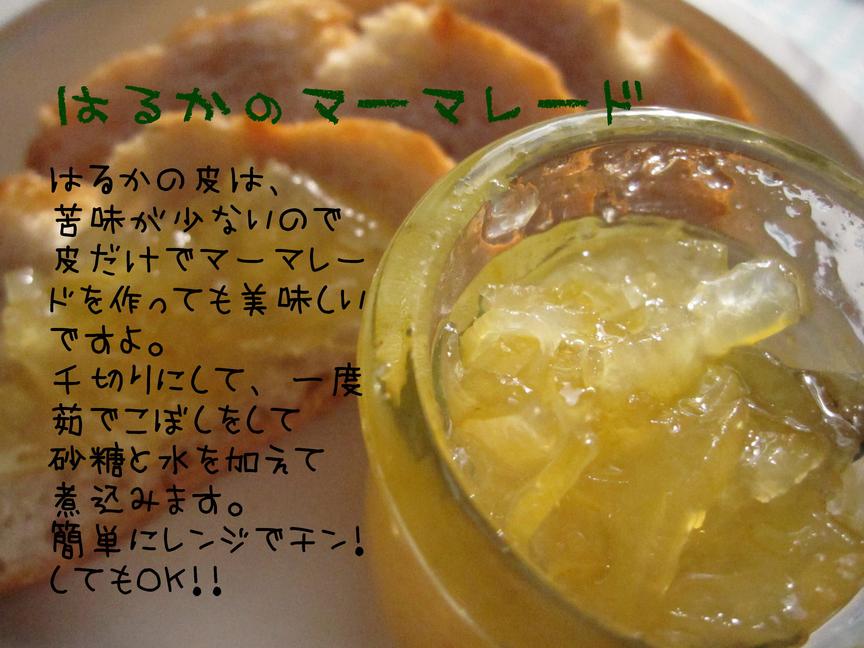 はるかのマーマレード
はるかの皮は、
苦味が少ないので
皮だけでマーマレー
ドを作っても美味しい
ですよ。
千切りにして、一度
茹でこぼしをして
砂糖と水を加えて
煮込みます。
簡単にレンジでチン!
してもOK!!